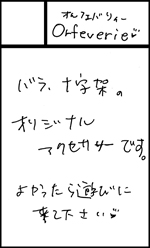 オルフェバリィー
Orfeverie
バラ、十字架の
オリジナル
アクセサリーです。
よかったら遊びに
来て下さい